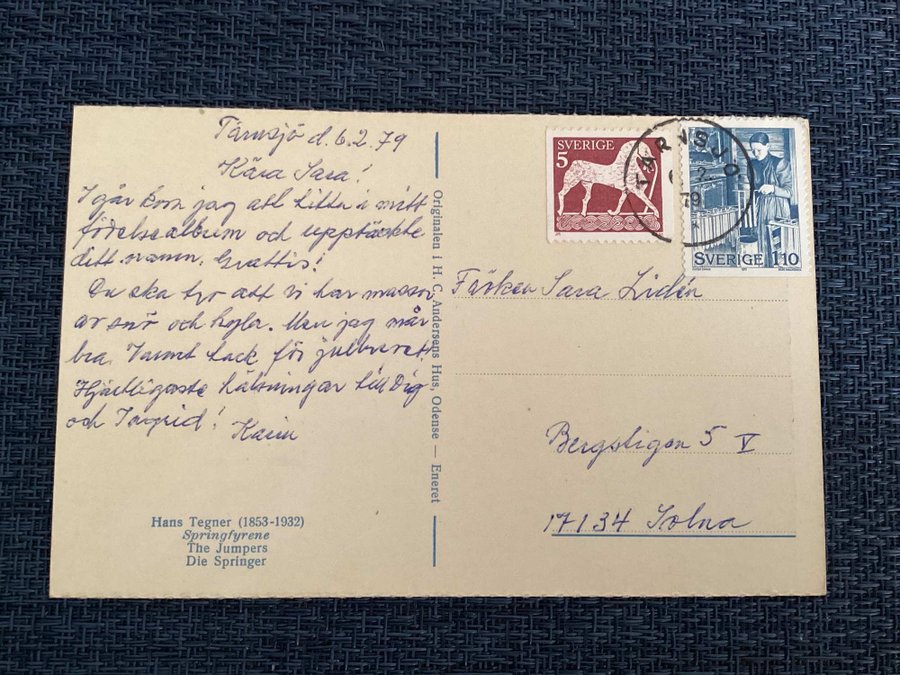 Tärnsjö d. 6.2.79
Kära Sara!
Igår kom jag att titta i mitt
födelsealbum och upptäckte
ditt namn. Grattis!
Du ska tro att vi har massor
av snö och kyla. Men jag mår
bra. Varmt tack för julbrevet.
Hjärtligaste hälsningar till Dig
och Ingrid!
Karin
Hans Tegner (1853-1932)
Springfyrene
The Jumpers
Die Springer
Originalen i H. C. Andersens Hus, Odense — Eneret
SVERIGE
5
TÄRNSJÖ
79
SVERIGE 110
Fröken Sara Lidén
Bergstigen 5 V
17134 Solna